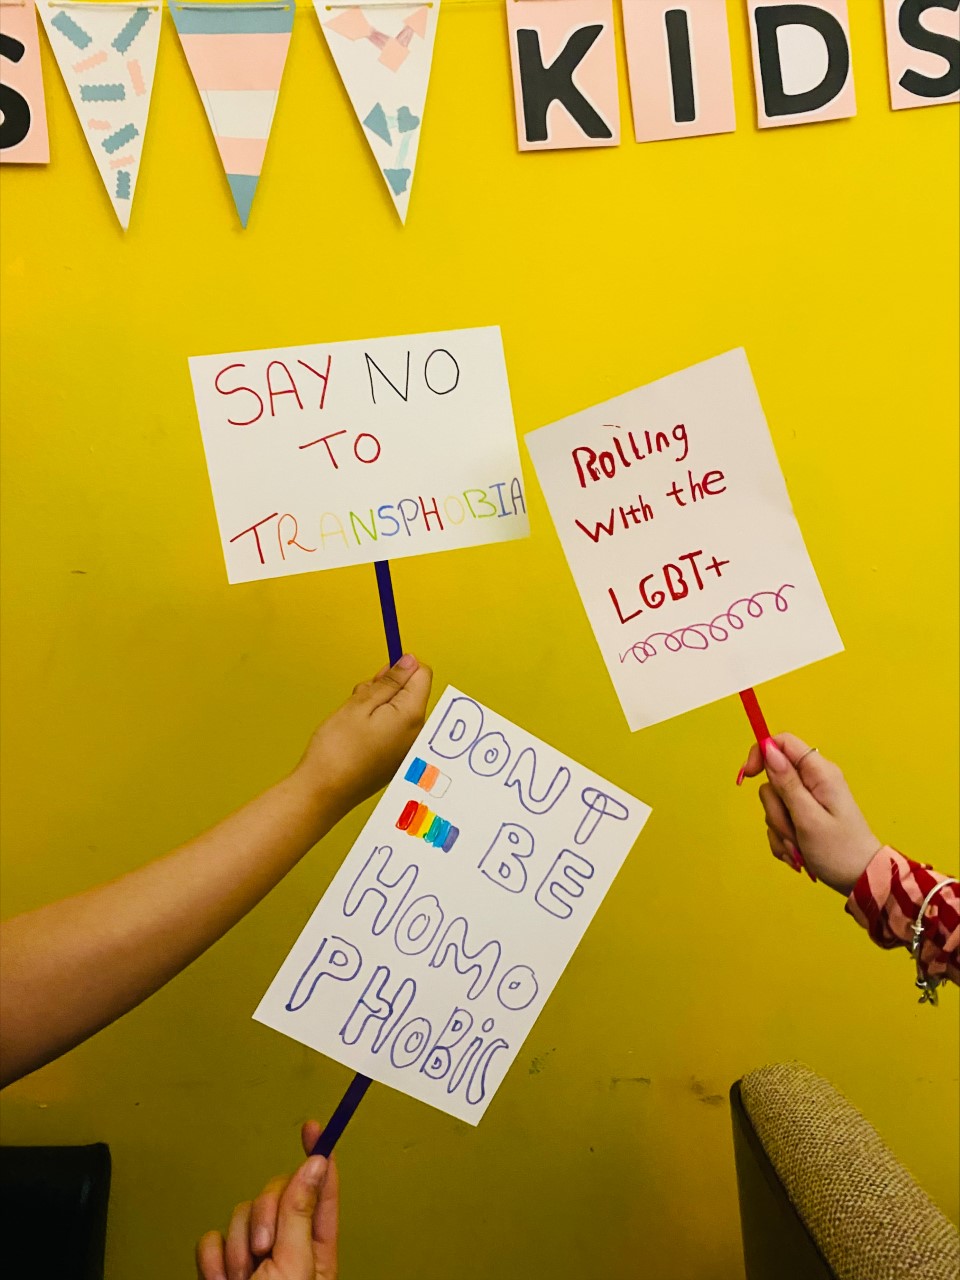 S KIDS
SAY NO
TO
TRANSPHOBIA
Rolling
With the
LGBT+
DONT
BE
HOMO
PHOBIC